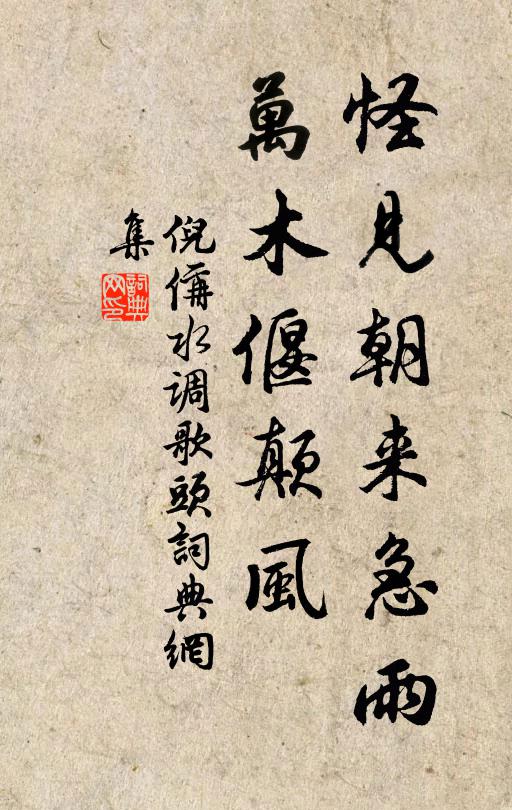 怪見朝来急雨
萬木偃顛風
倪偁水调歌頭詞典網
集
詞典网印